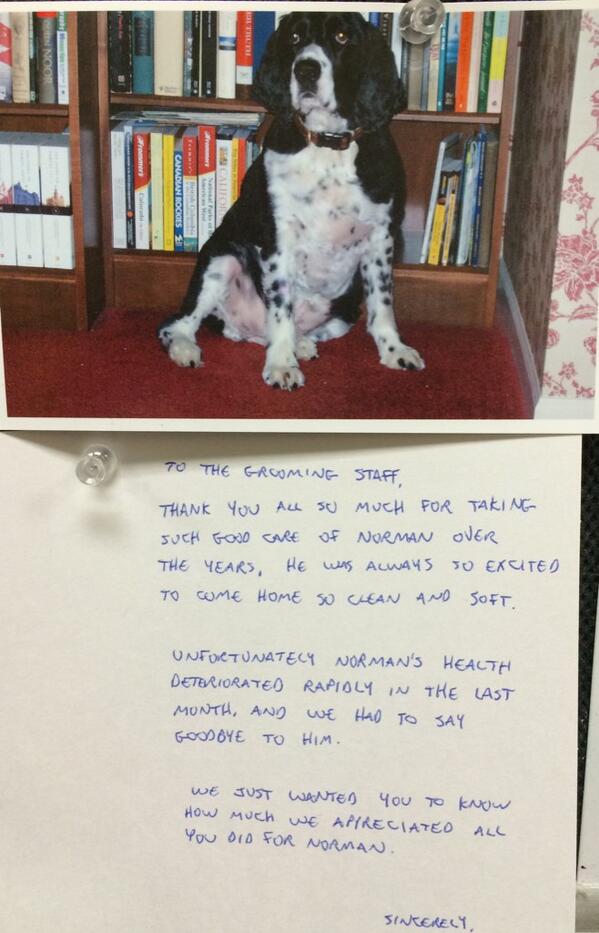 Frommer's
CANADIAN ROCKIES
Frommer's
British Columbia
National Parks of the
American West
TO THE GROOMING STAFF,
THANK YOU ALL SO MUCH FOR TAKING
SUCH GOOD CARE OF NORMAN OVER
THE YEARS. HE WAS ALWAYS SO EXCITED
TO COME HOME SO CLEAN AND SOFT.
UNFORTUNATELY NORMAN'S HEALTH
DETERIORATED RAPIDLY IN THE LAST
MONTH, AND WE HAD TO SAY
GOODBYE TO HIM.
WE JUST WANTED YOU TO KNOW
HOW MUCH WE APPRECIATED ALL
YOU DID FOR NORMAN.
SINCERELY,